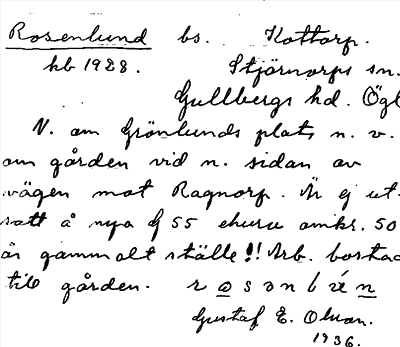 Rosenlund bs. Kottorp.
hb 1928. Stjärnorps sn.
Gullbergs hd. Ögl
V. om Grönlunds plats n. v.
om gården vid n. sidan av
vägen mot Ragnorp. Är ej ut-
satt å nya G 55 ehuru omkr. 50
år gammalt ställe!! Arb. bostad
till gården. rosənlén
Gustaf E. Olsson.
1936.